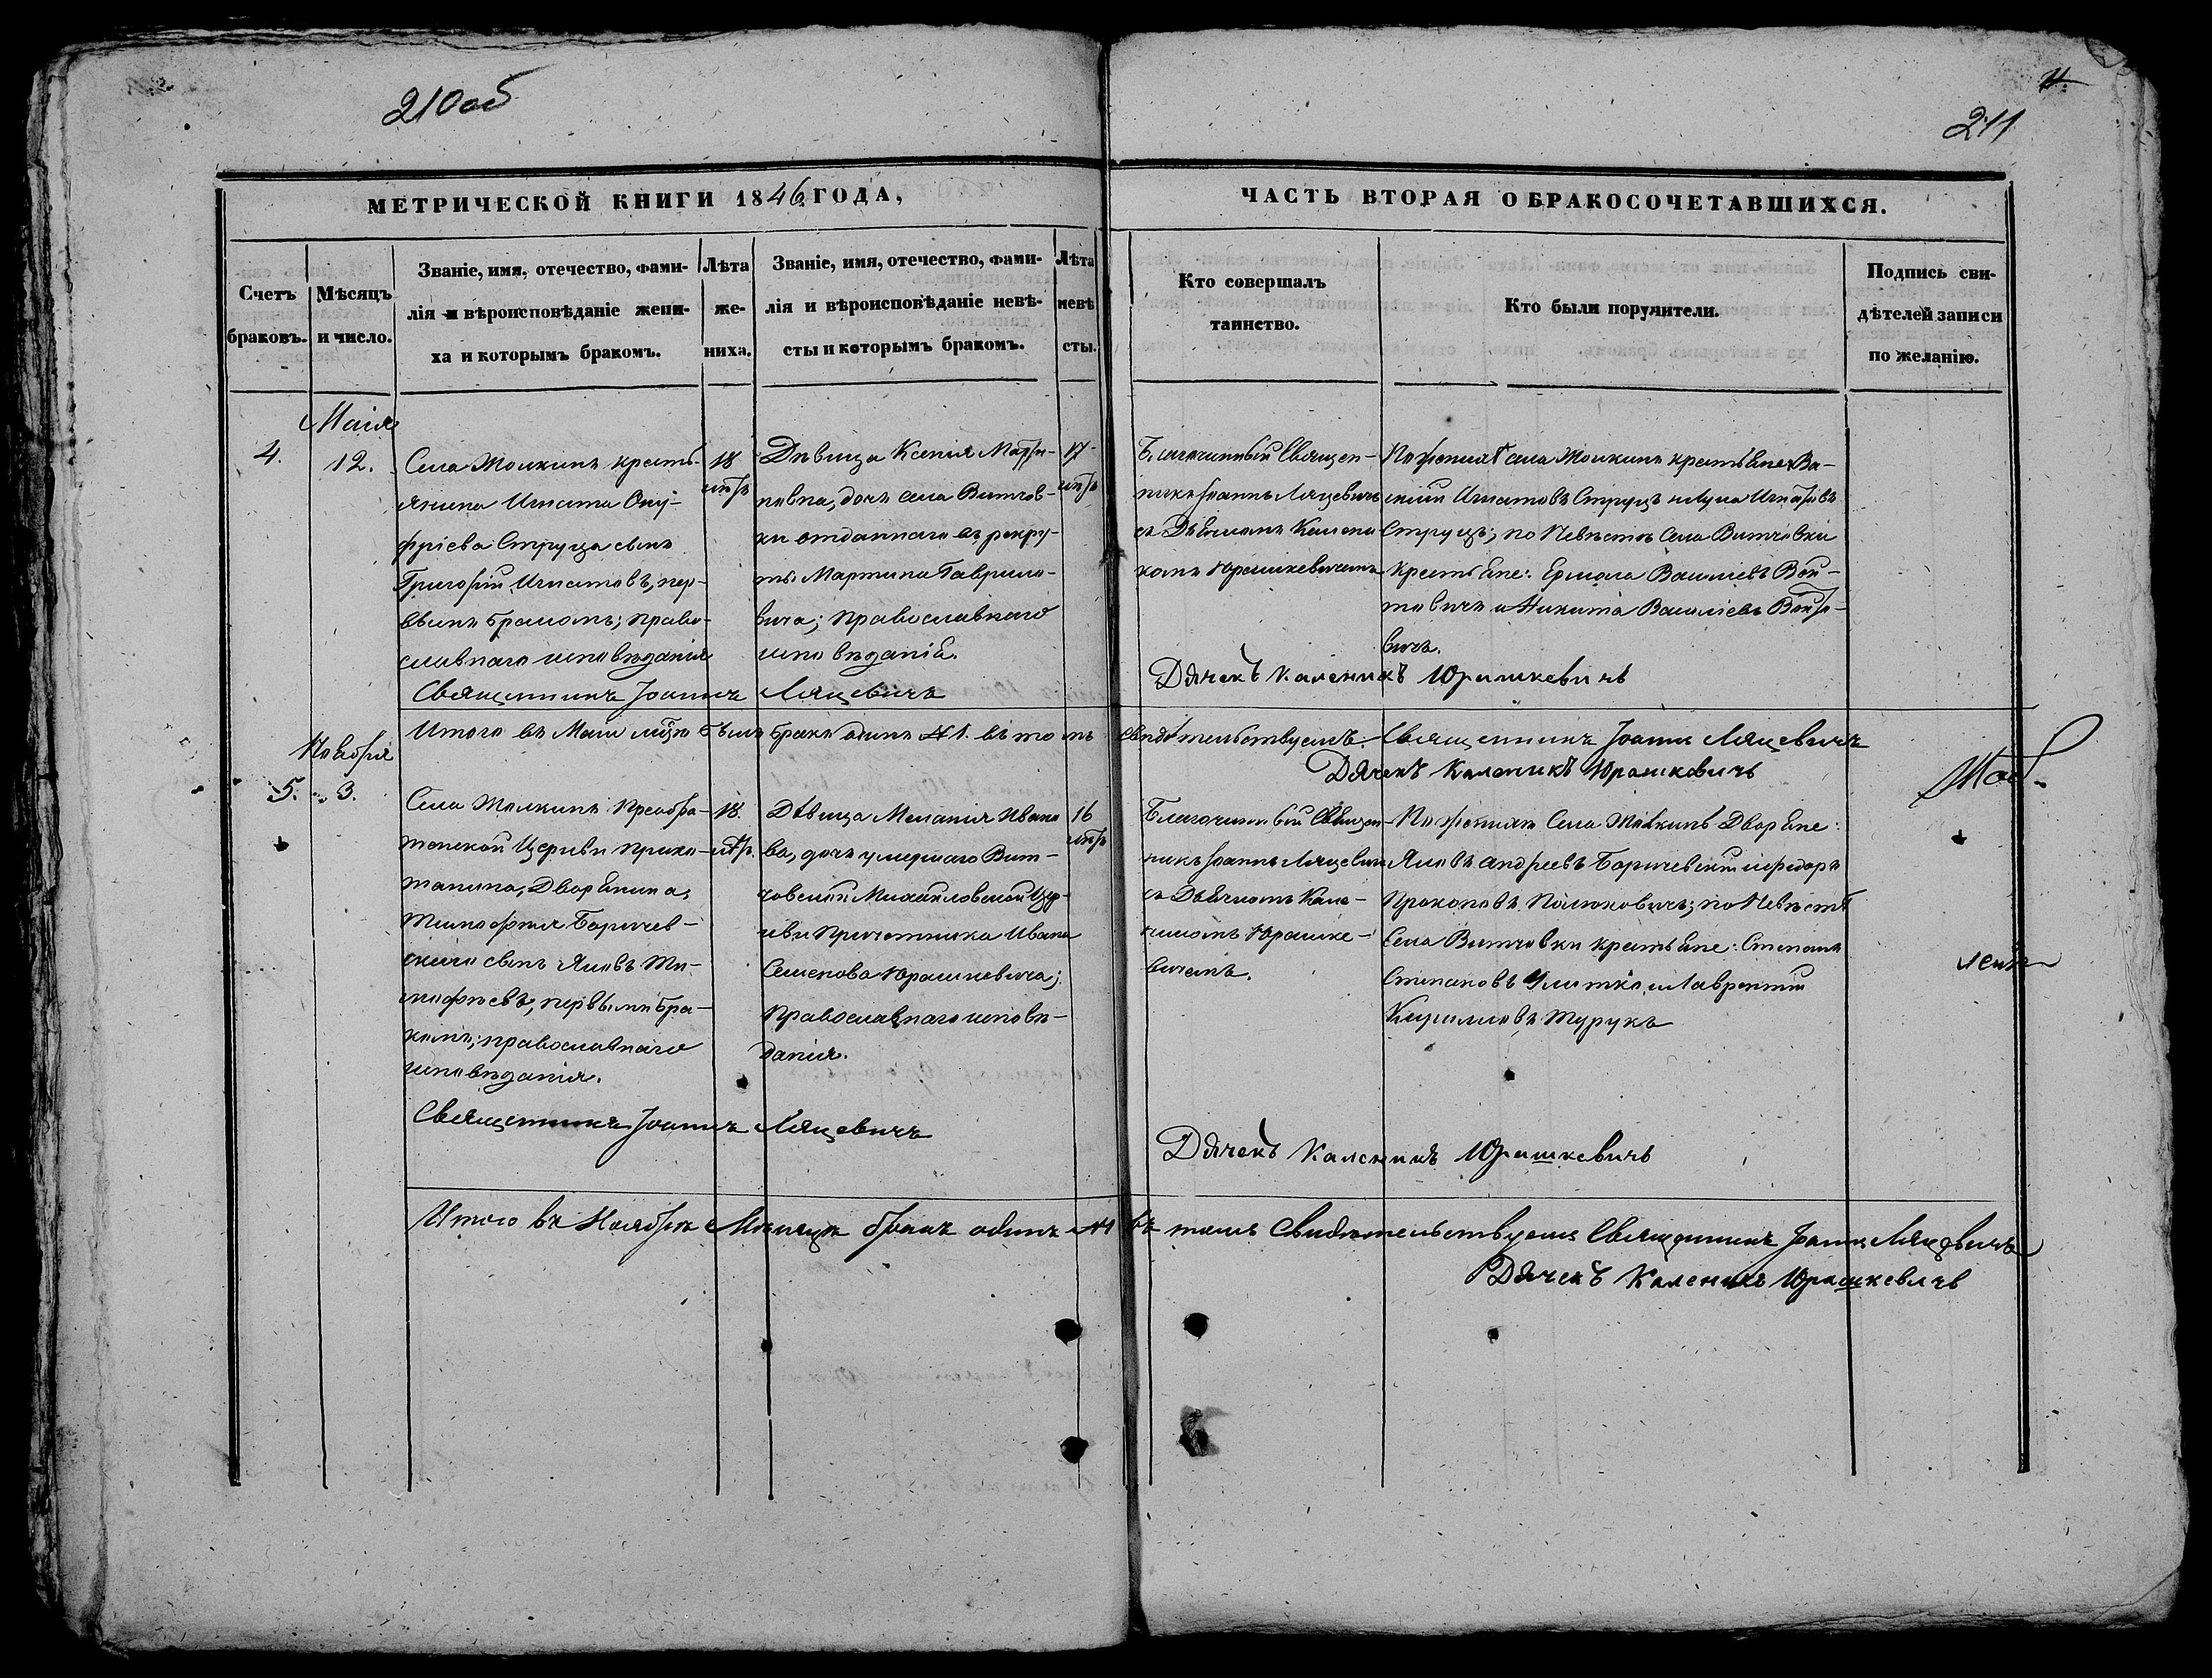 210об
4.
211
МЕТРИЧЕСКОЙ КНИГИ 1846 ГОДА,
ЧАСТЬ ВТОРАЯ О БРАКОСОЧЕТАВШИХСЯ.
Счетъ
браковъ.
Мѣсяцъ
и число.
Званіе, имя, отечество, фами-
лія и вѣроисповѣданіе жени-
ха и которымъ бракомъ.
Лѣта
же-
ниха.
Званіе, имя, отечество, фами-
лія и вѣроисповѣданіе невѣ-
сты и которымъ бракомъ.
Лѣта
невѣ
сты.
Кто совершалъ
таинство.
Кто были поручители.
Подпись сви-
дѣтелей записи
по желанію.
4.
Маія
12.
Села Молкинъ кресть-
янина Игната Ону-
фріева Струца сынъ
Григорій Игнатовъ, пер-
вымъ бракомъ; право-
славнаго исповѣданія
18
лѣтъ
Дѣвица Ксенія Марти-
новна, дочь села Витчев-
ки отданнаго въ рекру-
ты Мартина Гаврило-
вича; православнаго
исповѣданія.
17
лѣтъ
Благочинный Священ-
никъ Іоаннъ Ляцевичъ
съ Дьячкомъ Калени
комъ Юрашкевичемъ
По женихѣ села Молкинъ крестьяне: Ва-
силій Игнатовъ Струцъ и Лука Игнатовъ
Струцъ; по Невѣстѣ Села Витчовки
Крестьяне: Ермола Василіевъ Вой-
товичъ и Никита Василіевъ Войто-
вичъ.
Священникъ Іоаннъ Ляцевичъ
Дячекъ Каленикъ Юрашкевичъ
Итого въ Маіи мцѣ былъ бракъ одинъ № 1. въ томъ свидѣтельствуемъ. Священникъ Іоаннъ Ляцевичъ
Дячекъ Каленикъ Юрашкевичъ
5.
Ноября
3.
Села Молкинъ Преобра-
женской Церкви прихо-
жанина, Дворянина,
Тимофея Боричев-
скаго сынъ Яковъ Ти-
мофеевъ, первымъ бра-
комъ; православнаго
исповѣданія.
18.
лѣтъ.
Дѣвица Меланія Ивано
ва, дочь умершаго Вит-
човской Михайловской Цер-
кви Причетника Ивана
Семенова Юрашкевича;
Православнаго исповѣ-
данія.
16
лѣтъ
Благочинный Священ-
никъ Іоаннъ Ляцевичъ
съ Дьячкомъ Кале-
никомъ Юрашке-
вичемъ.
По женихѣ Села Молкинъ Дворяне:
Яковъ Андреевъ Боричевскій и Федоръ
Прокоповъ Полюховичъ; по Невѣстѣ
Села Витчовки крестьяне: Степанъ
Степановъ Улитко, и Лаврентій
Кириловъ Турукъ
Священникъ Іоаннъ Ляцевичъ
Дячекъ Каленикъ Юрашкевичъ
Итого въ Ноябрѣ Мѣсяцѣ бракъ одинъ № 1 въ томъ Свидѣтельствуемъ Священникъ Іоаннъ Ляцевичъ
Дячекъ Каленикъ Юрашкевичъ